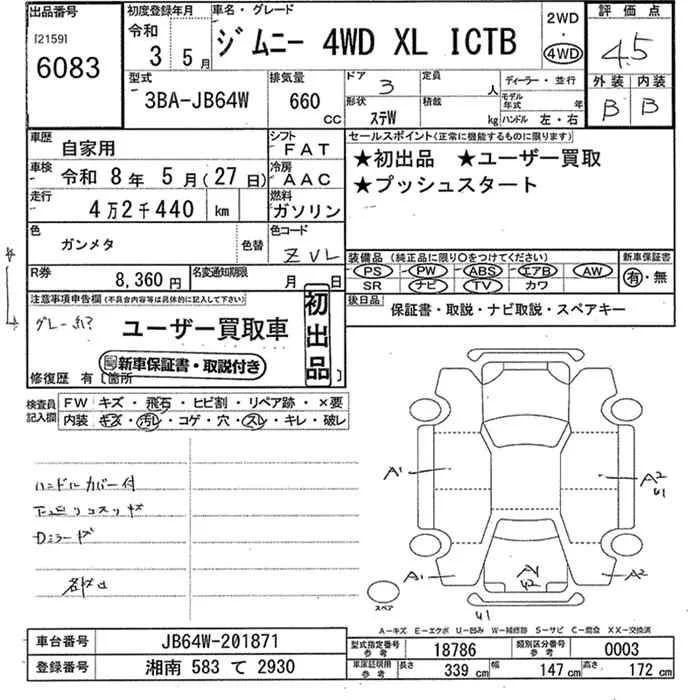 出品番号
[2159]
6083
初度登録年月
令和
3 5月
車名・グレード
ジムニー 4WD XL ICTB
2WD
・
4WD
評価点
4.5
型式
3BA-JB64W
排気量
660
CC
ドア
3
形状
ステW
定員
人
積載
kg
ディーラー・並行
モデル年式
年
ハンドル 左・右
外装 内装
B B
車歴
自家用
シフト
FAT
車検
令和 8年 5月(27日)
冷房
AAC
走行
4万2千440 km
燃料
ガソリン
色
ガンメタ
色替
色コード
ZVL
セールスポイント(正常に機能するものに限ります)
★初出品 ★ユーザー買取
★プッシュスタート
R券
8,360円
名変通知期限
月 日
装備品 (純正品に限り○をつけてください)
PS ・ PW ・ ABS ・ エアB ・ AW
SR ナビ ・ TV ・ カワ
新車保証書
有・無
後日品
保証書・取説・ナビ取説・スペアキー
注意事項申告欄(不具合内容等は具体的に記入して下さい)
ユーザー買取車
初出品
新車保証書・取説付き
修復歴 有〔箇所 〕
検査員記入欄
FW キズ・飛石・ヒビ割・リペア跡・×要
内装 キズ・汚レ・コゲ・穴・スレ・キレ・破レ
ハンドルカバー付
下廻リコスリキズ
Dミラーキズ
A1
A2
U1
A1
A2
AY
U2
U1
スペア
A-キズ E-エクボ U-凹み W-補修跡 S-サビ C-腐食 XX-交換済
車台番号
JB64W-201871
登録番号
湘南 583 て 2930
型式指定番号
参考
18786
類別区分番号
参考
0003
車庫証明用
参考
長さ 339 cm
幅 147 cm
高さ 172 cm